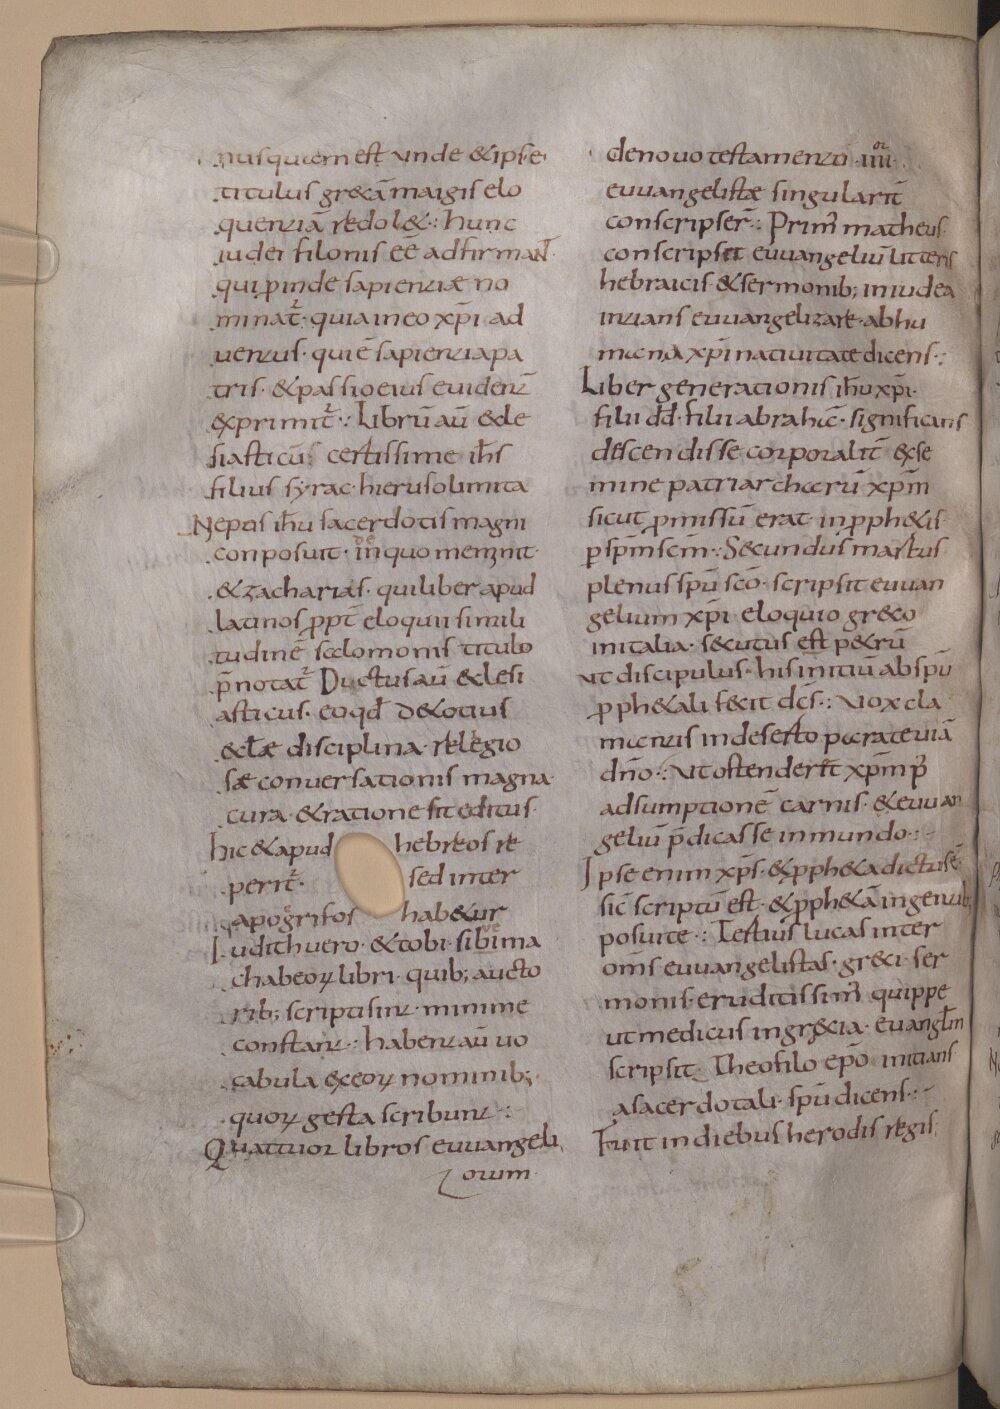 nusquam est unde &ipse
titulus grecã magis elo
quentiã redol&: hunc
iudei filonis eẽ adfirmant̃
qui pinde sapientiæ no
minat᷒ quia in eo xp̃i ad
uentus· qui ẽ sapientia pa
tris· & passio eius euident̃
exprimit᷒: Librũ aũ &cle
siasticũ; certissime ih̃s
filius syrac· hierusolimita
Nepus ih̃u sacerdotis magni
conposuit· in quo meminit·
& zacharias· qui liber apud
latinos ꝓpt̃ eloquii simili
tudinẽ salomonis titulo
p̃notat᷒ Ductus aũ &clesi
asticus· eo qđ de totius
&cłæ disciplina· relegio
sæ conuersationis magna
cura· & ratione sit editus·
hic & apud hebreos re
perit᷒· sed inter
apogrifos hab&ur
Iudith uero· & tobi· sibi ma
chabeoꝝ libri· quib; aucto
rib; scripti sint· minime
constant: habent aũ uo
cabula ex eoꝝ nominib;
quoꝝ gesta scribunt:
Quattuor libros euuangeli
orum
de nouo testamento· iiii or
euuangelistæ singularit̃
conscripser̃: Prim᷒ matheus
conscripsit euuangeliũ litteris
hebraicis· & sermonib; in iudea
intians euuangelizare· ab hu
mana xp̃i natiuitate dicens:
Liber generationis ih̃u xp̃i·
filii dd̃· filii abraham· significans
descendisse corporalit̃ ex se
mine patriarcharũ xp̃m̃
sicut ꝓmissũ erat· in ꝓph&is·
p sp̃m sc̃m: Secundus martus
plenus sp̃u sc̃o· scripsit euuan
gelium xp̃i eloquio greco
in italia· secutus est petrũ
ut discipulus· his initiũ ab sp̃u
ꝓph&ali fecit dc̃s: Uox cla
mantis in deserto parate uiã
dño: Ut ostender&̃ xp̃m p᷒
adsumptionẽ carnis· & euuan
geliũ p̃dicasse in mundo:
Ipse enim xp̃s· & ꝓph&a dictus ẽ
sic̃ scriptũ est· & ꝓph&ã in gentib;
posui te: Tertius lucas inter
om̃s euuangelistas· greci· ser
monis· eruditissim᷒ quippe
ut medicus in grecia· euangłm
scripsit Theofilo ep̃o initians
a sacerdotali· sp̃u dicens:
Fuit in diebus herodis regis